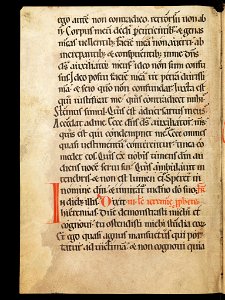 ego autē non contradico. retrorsū non abii
Corpus meū dedi pcutientib; & genas
meas vellentib; faciē meā non averti ab
increpantib; & conspuentib; in me dn̄s
ds̄ auxiliator meus ideo non sum confu
sus Ideo posui faciē meā ut petrā durissi
mā & scio qm̄ non confundar Iuxta est
qui iustificat me quis contradicet mihi
Stemus simul Quis est adversarius meus
Accedat ad me Ecce dn̄s ds̄ auxiliator ms̄
quis est qui condempnet me Ecce omnes
quasi vestimentū conterentur tinea co
medet eos Quis ex vobis timens dn̄m au
diens vocē servi sui Qui ambulavit in
tenebris & non est lumen ei Speret in
nomine dn̄i & innitat̄ sup dn̄m suū
In dieb; illis Dixit
Iheremias Dn̄e demonstrasti michi et
cognovi tu ostendisti michi studia eoꝝ
Et ego quasi agnus mansuetus qui por
tatur ad victimā & non cognovi quia